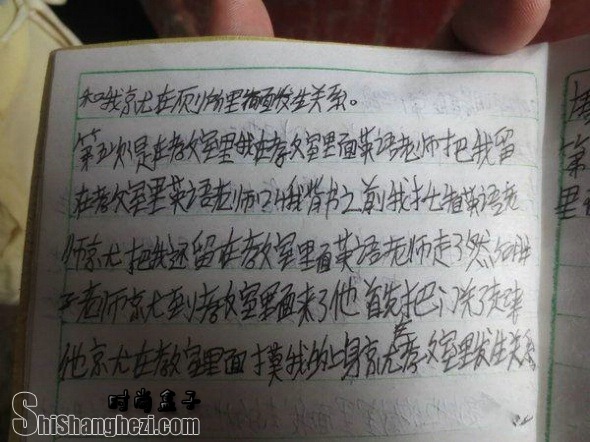 和我京尤在厕所里面发生关系。
第五次是在教室里我在教室里面英语老师把我留
在教室里英语老师叫我背书之前我英语老
师京尤把我还留在教室里面英语老师走了然
子老师京尤到教室里面来了他首先把门关了起来
他京尤在教室里面摸我的上身京尤在教室里发生关系
第
里
时尚盒子
ShiShanghezi.com